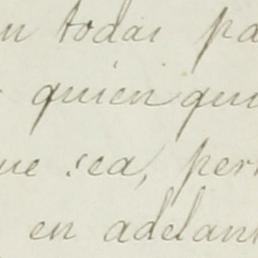 en todas pa
quien qui
ue sea, per
en adelant